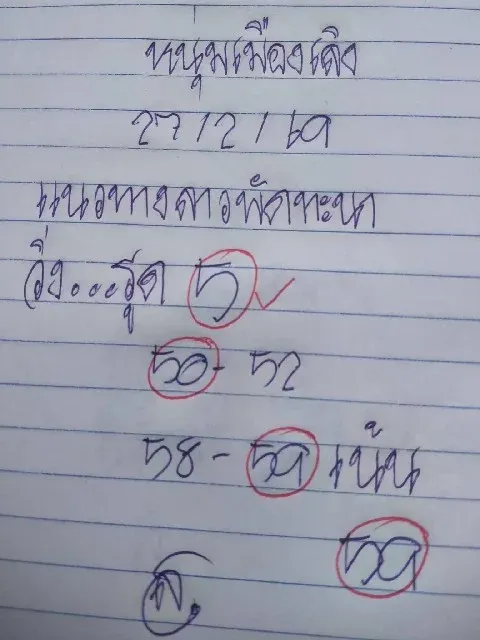 หนุ่มเมืองเลิง
27/2/69
แนวทางลาวพัฒทะนา
วิ่ง...รูด 5
50 - 52
58 - 59 เน้น
59